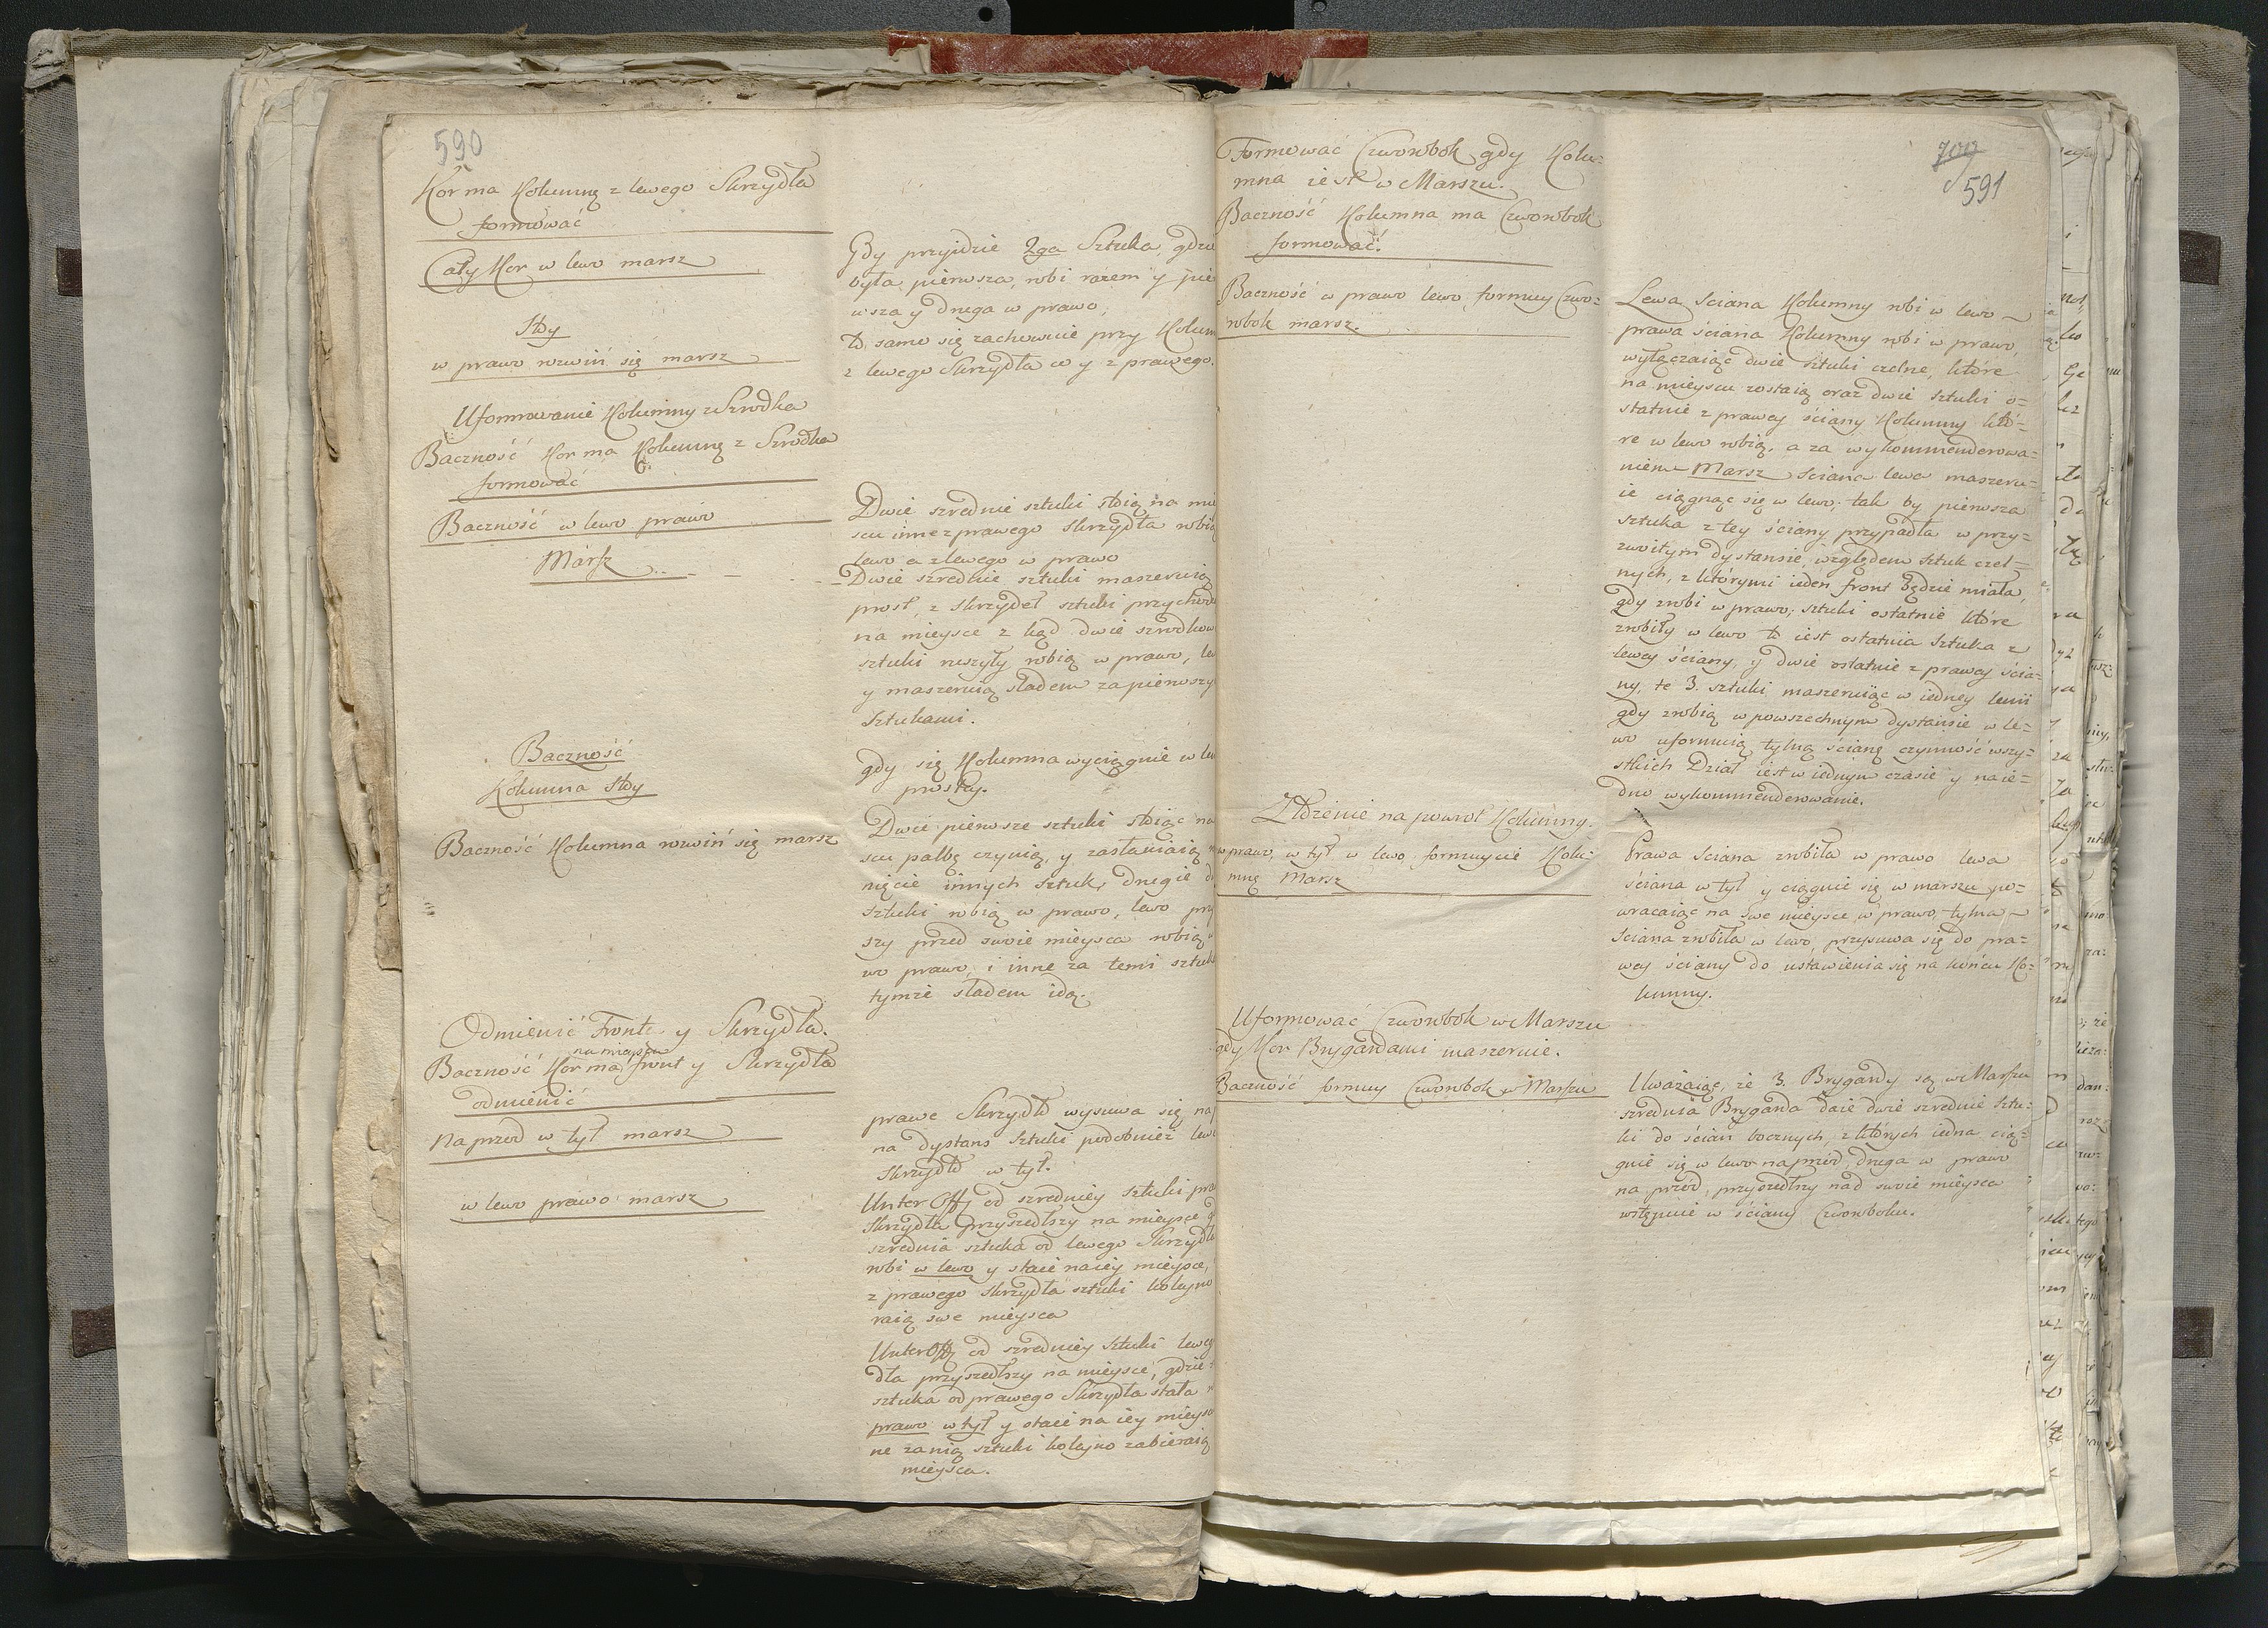 590
Kor ma Kolumnę z lewego Skrzydła
formować
Cały Kor w lewo marsz
Stóy
w prawo rozwiń się marsz
Uformowanie Kolumny z Szrodka
Baczność Kor ma Kolumnę z Szrodka
formować
Baczność w lewo prawo
Marsz
Baczność
Kolumna Stóy
Baczność Kolumna rozwiń się marsz
Odmienić Front y Skrzydła.
na mieyscu
Baczność Kor ma front y Skrzydła
odmienić
Naprzod w tył marsz
w lewo prawo marsz
Gdy przyidzie 2ga Sztuka, gdzie
była pierwsza, robi razem y pie
wsza y druga w prawo,
to samo się zachowuie przy Kolum
z lewego Skrzydła co y z prawego.
Dwie szrednie sztuki stoią na mie
scu inne z prawego Skrzydła robią
lewo a z lewego w prawo
Dwie szrednie sztuki maszeruią
prost, z Skrzydeł sztuki przychod
na mieysce z kąd dwie szrodkow
sztuki ruszyły robią w prawo, lew
y maszeruią sladem za pierwszy
Sztukami.
gdy się Kolumna wyciągnie w lin
prostey.
Dwie pierwsze sztuki stoiąc na
scu palbę czynią, y zasłaniaią
nięcie innych sztuk, drugie d
sztuki robią w prawo, lewo prz
szy przed swoie mieysca robią
wo prawo, i inne za temi sztuk
tymże sladem idą.
prawe Skrzydło wysuwa się nap
na dystans Sztuki podobnież lew
Skrzydło w tył.
Unter Off od szredniey sztuki pra
Skrzydła przyszedłszy na mieysce g
szrednia sztuka od lewego Skrzydł
robi w lewo y staie na iey mieysce,
z prawego Skrzydła sztuki koleyno
raią swe mieysca
Unter Off od szredniey Sztuki leweg
dła przyszedłszy na mieysce, gdzie
sztuka od prawego Skrzydła stała
prawo w tył y staie na iey mieysc
ne za nią sztuki koleyno zabieraią
mieysca.
Formować Czworobok gdy Kolu=
mna iest w Marszu.
Baczność Kolumna ma Czworobok
formować.
Baczność w prawo lewo formuy Czwo=
robok marsz.
Złożenie na powrot Kolumny.
w prawo, w tył w lewo, formuycie Kolu=
mnę Marsz
Uformować Czworobok w Marszu
gdy Kor Brygandami maszeruie.
Baczność formuy Czworobok w Marszu
700
591
Lewa Sciana Kolumny robi w lewo
prawa ściana Kolumny robi w prawo,
wyłączaiąc dwie sztuki czelne, które
na mieyscu zostaią oraz dwie sztuki o=
statnie z prawey ściany Kolumny któ=
re w lewo robią, a za wykommenderowa=
niem Marsz Sciana lewa maszeru=
ie ciągnąc się w lewo, tak by pierwsza
sztuka z tey ściany przypadła w przy=
zwoitym dystansie, względem sztuk czel=
nych, z którymi ieden front będzie miała,
gdy zrobi w prawo; sztuki ostatnie które
zrobiły w lewo to iest ostatnia sztuka z
lewey ściany, y dwie ostatnie z prawey ścia=
ny, te 3. sztuki maszeruiąc w iedney lenii
gdy zrobią w powszechnym dystansie w le=
wo uformuią tylną ścianę czynność wszy=
stkich Dział iest w iednym czasie y na ie=
dno wykommenderowanie.
Prawa ściana zrobiła w prawo lewa
ściana w tył y ciągnie się w marszu po=
wracaiąc na swe mieysce w prawo, tylna
Sciana zrobiła w lewo, przysuwa się do pra=
wey ściany do ustawienia się na końcu Ko=
lumny.
Uważaiąc, że 3. Brygandy są w Marszu
szrednia Bryganda daie dwie szrednie Sztu=
ki do ścian bocznych, z których iedna cią=
gnie się w lewo naprzód, druga w prawo
na przód, przyszedłszy nad swoie mieysca
wstępuie w ściany Czworoboku.